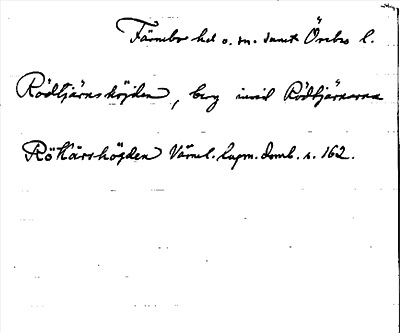 Färnebo hd o. m. samt Örebro l.
Rödtjärnshöjden, berg invid Rödtjärnarna
Rötkärshögden Värml. lagm. domb. s. 162.